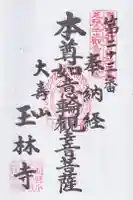 第二十二番
奉納経
本尊如意輪観世音菩薩
大壽山
玉林寺